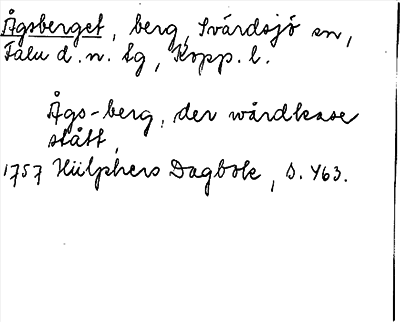 Ågsberget, berg, Svärdsjö sn,
Falu d. n. lg, Kopp. l.
Ågs-berg, der wårdkase
stått,
1757 Hülphers Dagbok, s. 463.